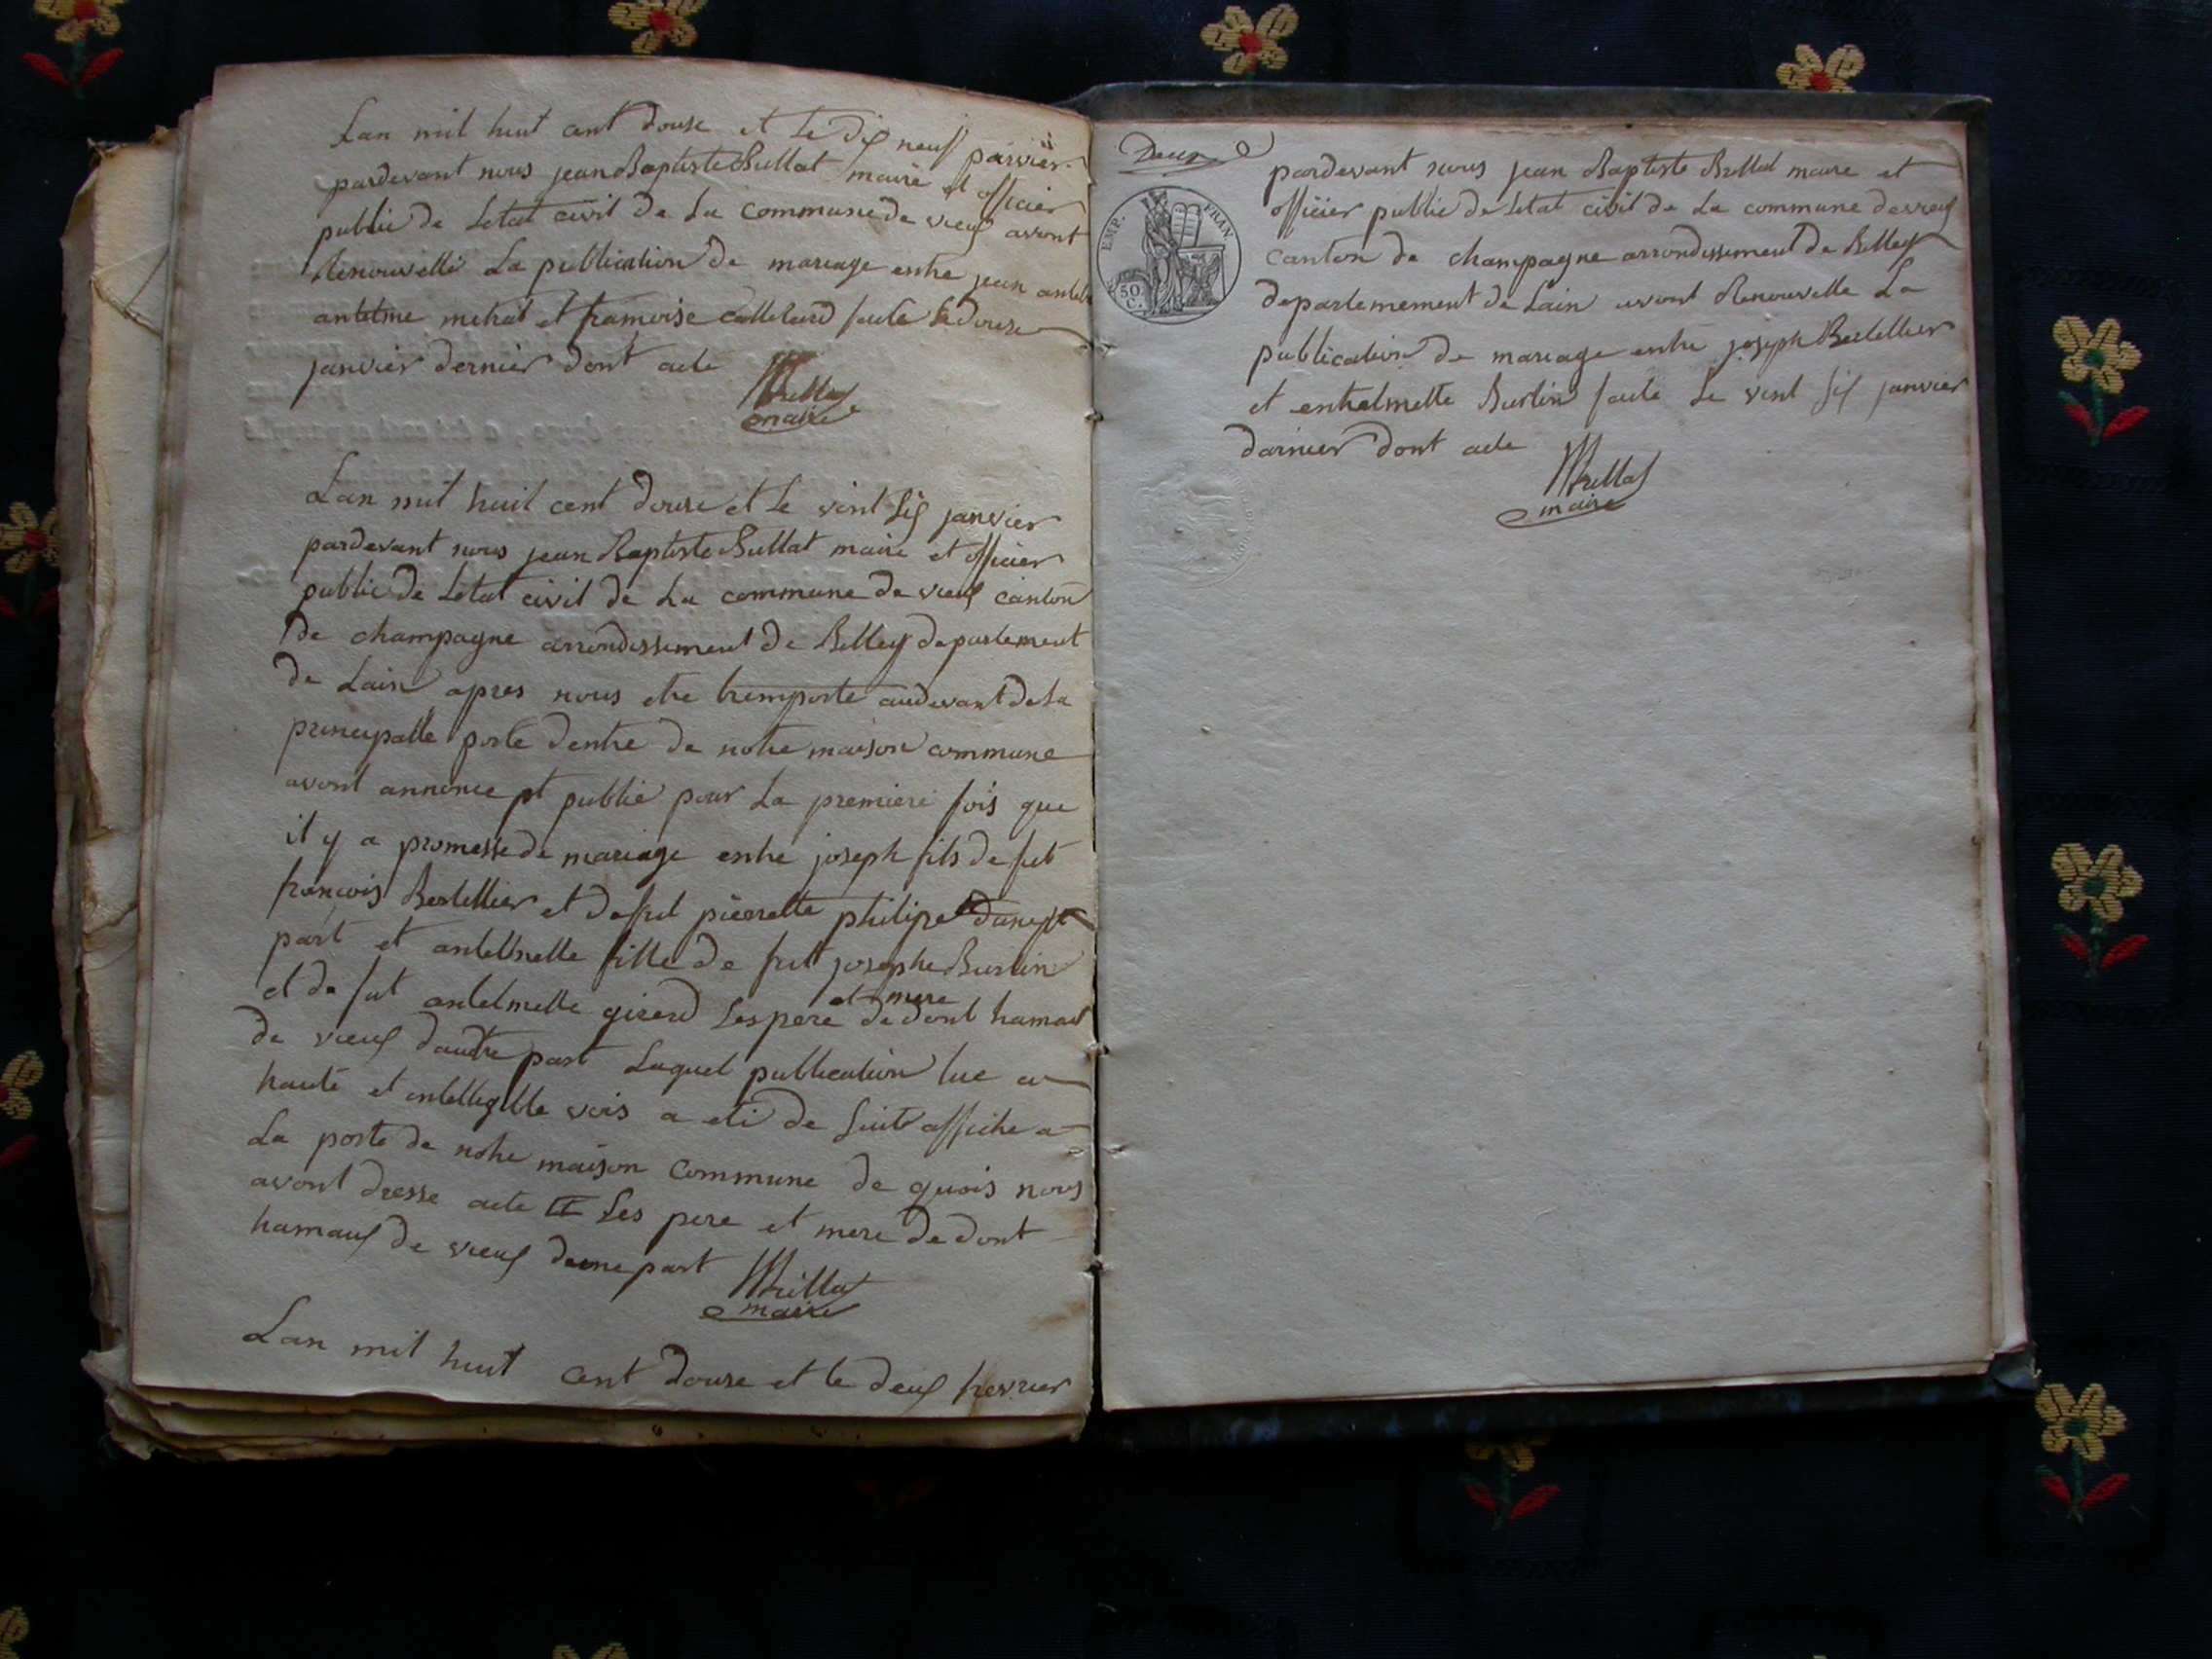 Lan mil huit cent douse et le dix neuf janvier
pardevant nous jean Baptiste Bullat maire et officier
public de Letat civil de La commune de vieux avont
Renouvelle La publication de mariage entre jean antel
antelme mehat et framoise faite le douse
janvier dernier dont acte
Bullat
maire
Lan mil huit cent douse et Le vint six janvier
pardevant nous jean Baptiste Bullat maire et officier
public de Letat civil de La commune de vieux canton
de champagne arrondissement de Belley departement
de Lain apres nous etre tremporte audevant de La
principalle porte dentre de notre maison commune
avont annonce et publie pour La premiere fois que
il y a promesse de mariage entre joseph fils de fut
francois Bertellier et de fut pierrette philipe dune
part et antelmette fille de fut josephe Burtin
et de fut antelmette girerd Les pere et mere de dont hamaux
de vieux dautre part Laquel publication lue a
haute et intelligible vois a ete de suite affiche a
La porte de notre maison commune de quois nous
avont dresse acte Les pere et mere de dont
hamaux de vieux dune part
Bullat
maire
Lan mil huit cent douse et le deux fevrier
Deux
EMP. FRAN
50
C.
pardevant nous jean Baptiste Bullat maire et
officier public de Letat civil de La commune de vieux
canton de champagne arrondissement de Belley
departemement de Lain avont Renouvelle La
publication de mariage entre joseph Bertellier
et entelmette Burtin faite Le vint six janvier
darnier dont acte
Bullat
maire